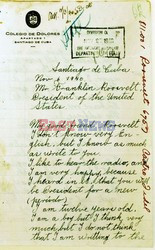 COLEGIO DE DOLORES
APARTADO 1
SANTIAGO DE CUBA
Santiago de Cuba
Nov 6 1940
Mr Franklin Roosevelt,
President of the United
States.
My good friend Roosevelt
I don't know very En
glish, but I know as much
as write to you.
I like to hear the radio, and
I am very happy, because
I heard in it, that you will
be President for a new
(periodo)
I am twelve years old.
I am a boy but I think very
much but I do not think
that I am writting to the